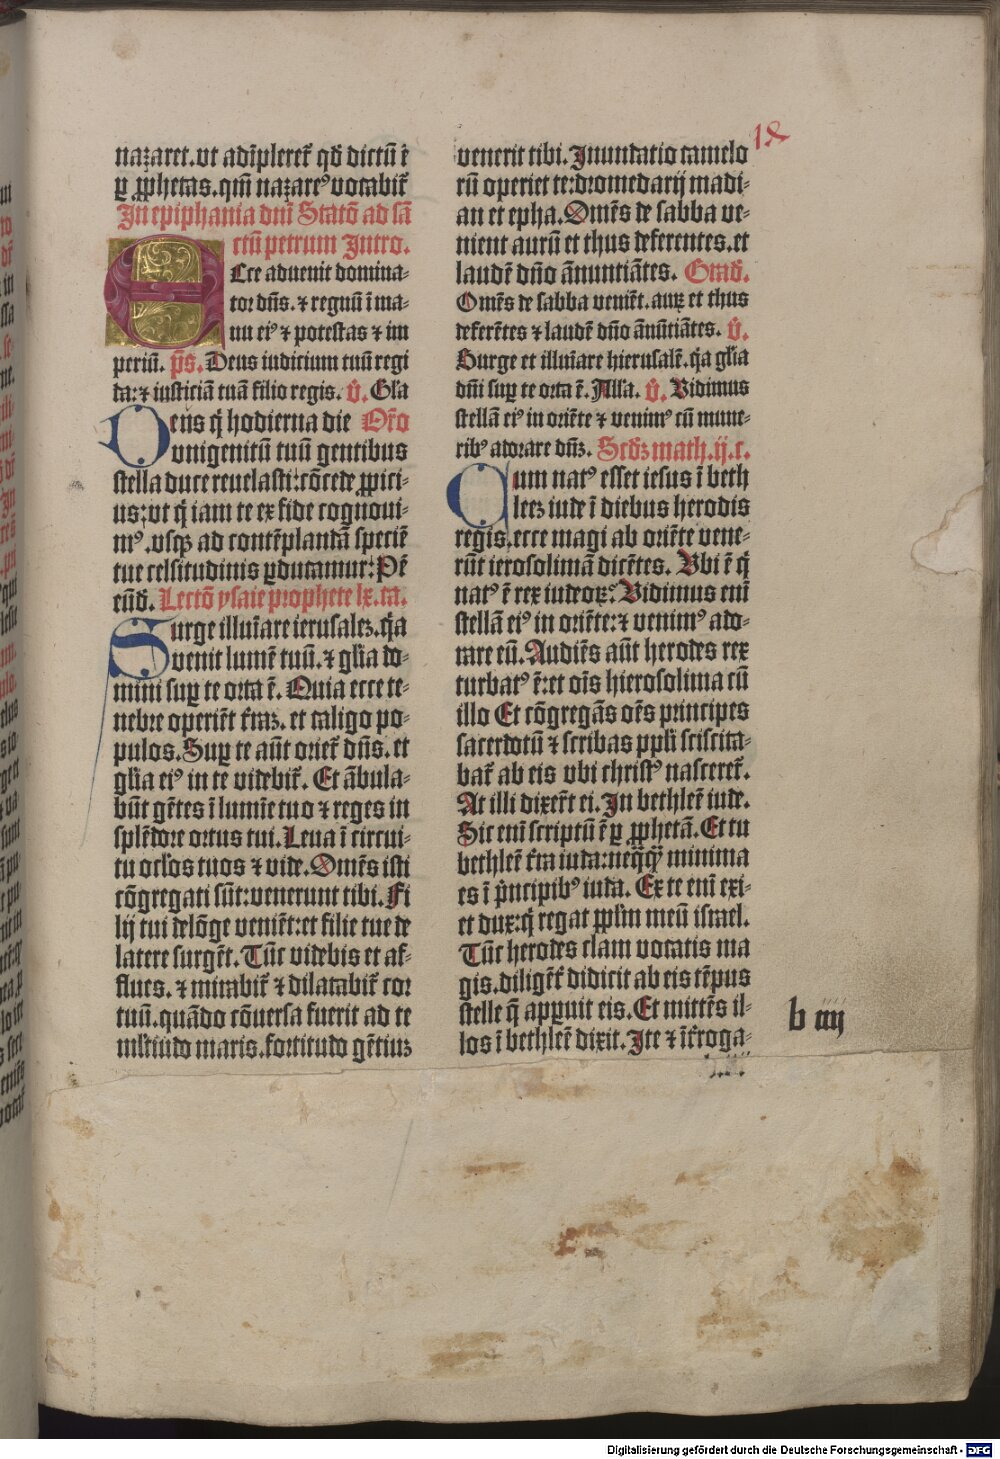 nazaret. vt adīpleret᷑ qd̄ dictū ē
ꝑ ꝓphetas. qm̄ nazareꝰ vocabit᷑
In epiphania dn̄i Statō ad sā
ctū petrum Intro.
Ecce aduenit domina-
tor dn̄s. ⁊ regnū ī ma-
nu eiꝰ ⁊ potestas ⁊ im
periū. p̄s. Deus iudicium tuū regi
da: ⁊ iusticiā tuā filio regis. v̄. Gl̄a
Deus q̄ hodierna die Or̄o
vnigenitū tuū gentibus
stella duce reuelasti: cōcede ꝓpici-
us: vt q̄ iam te ex fide cognoui-
mꝰ. vsqꝫ ad contēplandā speciē
tue celsitudinis ꝑducamur: Pē
eūd̄. Lectō ysaie prophete lx. ca.
Surge illuīare ierusaleꝫ. q̄a
venit lumē tuū. ⁊ gl̄ia do-
mini suꝑ te orta ē. Quia ecce te-
nebre operiēt t᷑raꝫ. et caligo po-
pulos. Suꝑ te aūt oriet᷑ dn̄s. et
gl̄ia eiꝰ in te videbit᷑. Et ābula-
būt gētes ī lumīe tuo ⁊ reges in
splēdore ortus tui. Leua ī circui-
tu oclos tuos ⁊ vide. Om̄es isti
cōgregati sūt: venerunt tibi. Fi
lij tui delōge veniēt: et filie tue de
latere surgēt. Tūc videbis et af-
flues. ⁊ mirabit᷑ ⁊ dilatabit᷑ cor
tuū. quādo cōuersa fuerit ad te
mltitudo maris. fortitudo gētiuꝫ
venerit tibi. Inundatio camelo
rū operiet te: dromedarij madi-
an et epha. Om̄es de sabba ve-
nient aurū et thus deferentes. et
laudē dn̄o ānuntiātes. Grad̄.
Om̄es de sabba veniēt. auꝝ et thus
deferētes ⁊ laudē dn̄o ānūtiātes. v̄.
Surge et illuīare hierusalē. q̄a gl̄ia
dn̄i suꝑ te orta ē. Alla. v̄. Vidimus
stellā eiꝰ in oriēte ⁊ venimꝰ cū mune-
ribꝰ adorare dn̄ꝫ. Scd̄ꝫ math. ij. c.
Cum natꝰ esset iesus ī beth
leeꝫ iude ī diebus herodis
regis. ecce magi ab oriēte vene-
rūt ierosolimā dicētes. Vbi ē q̄
natꝰ ē rex iudeoꝝ? Vidimus enī
stellā eiꝰ in oriēte: ⁊ venimꝰ ado-
rare eū. Audiēs aūt herodes rex
turbatꝰ ē: et oīs hierosolima cū
illo Et cōgregās oēs principes
sacerdotū ⁊ scribas ppl̄i sciscita-
bat᷑ ab eis vbi christꝰ nasceret᷑.
At illi dixer̄t ei. In bethleē iude.
Sic enī scriptū ē ꝑ ꝓphetā. Et tu
bethleē t᷑ra iuda: neq̄q̄ꝫ minima
es ī p̄ncipibꝰ iuda. Ex te enī exi-
et dux: q̄ regat ppl̄m meū israel.
Tūc herodes clam vocatis ma
gis. diligēt᷑ didicit ab eis tēpus
stelle q̄ apꝑuit eis. Et mittēs il-
los ī bethleē dixit. Ite ⁊ īt᷑roga-
b iiij
Digitalisierung gefördert durch die Deutsche Forschungsgemeinschaft - DFG